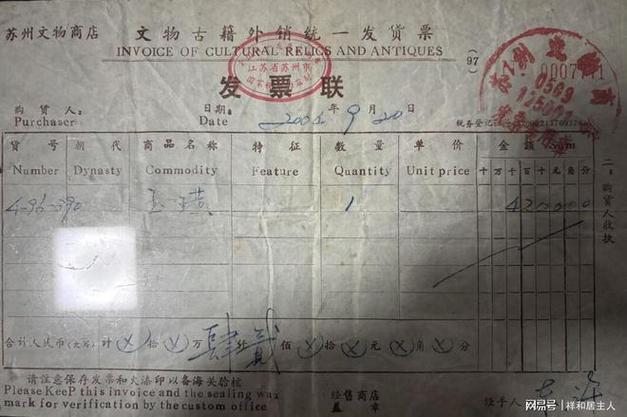 苏州文物商店 文物古籍外销统一发货票
INVOICE OF CULTURAL RELICS AND ANTIQUES
(97)
江苏省苏州市
发票联
购货人: 日期: 年 9 月 20 日
Purchaser Date
税务登记证
货号 朝代 商品名称 特征 数量 单价 金额 Sum
Number Dynasty Commodity Feature Quantity Unit price 十万千百十元角分
玉璜 1
二:购货人收执
合计人民币(大写) 计 ⊗ 拾 ⊗ 万 肆 仟 贰 佰 ⊗ 拾 ⊗ 元 ⊗ 角 ⊗ 分
请注意保存发票和火漆印以备海关验核
Please KeeP this invoice and the sealing wax
mark for verification by the custom office
经售商店
盖章
经手人
网易号 | 祥和居主人